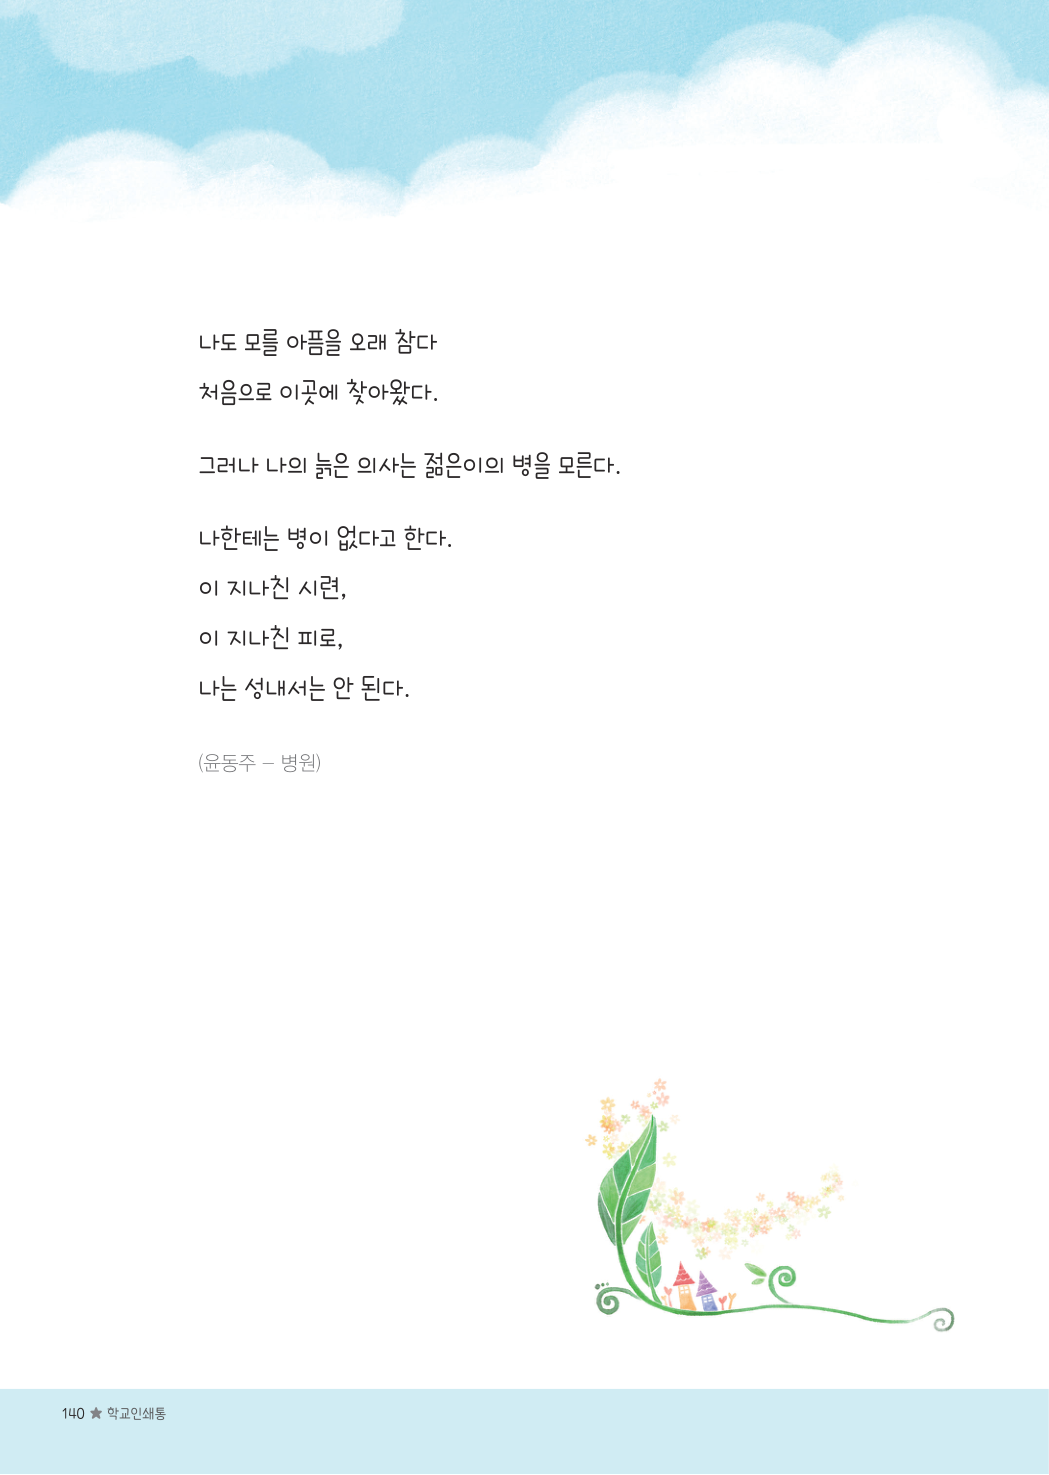 나도 모를 아픔을 오래 참다
처음으로 이곳에 찾아왔다.
그러나 나의 늙은 의사는 젊은이의 병을 모른다.
나한테는 병이 없다고 한다.
이 지나친 시련,
이 지나친 피로,
나는 성내서는 안 된다.
(윤동주 – 병원)
140 ★ 학교인쇄통